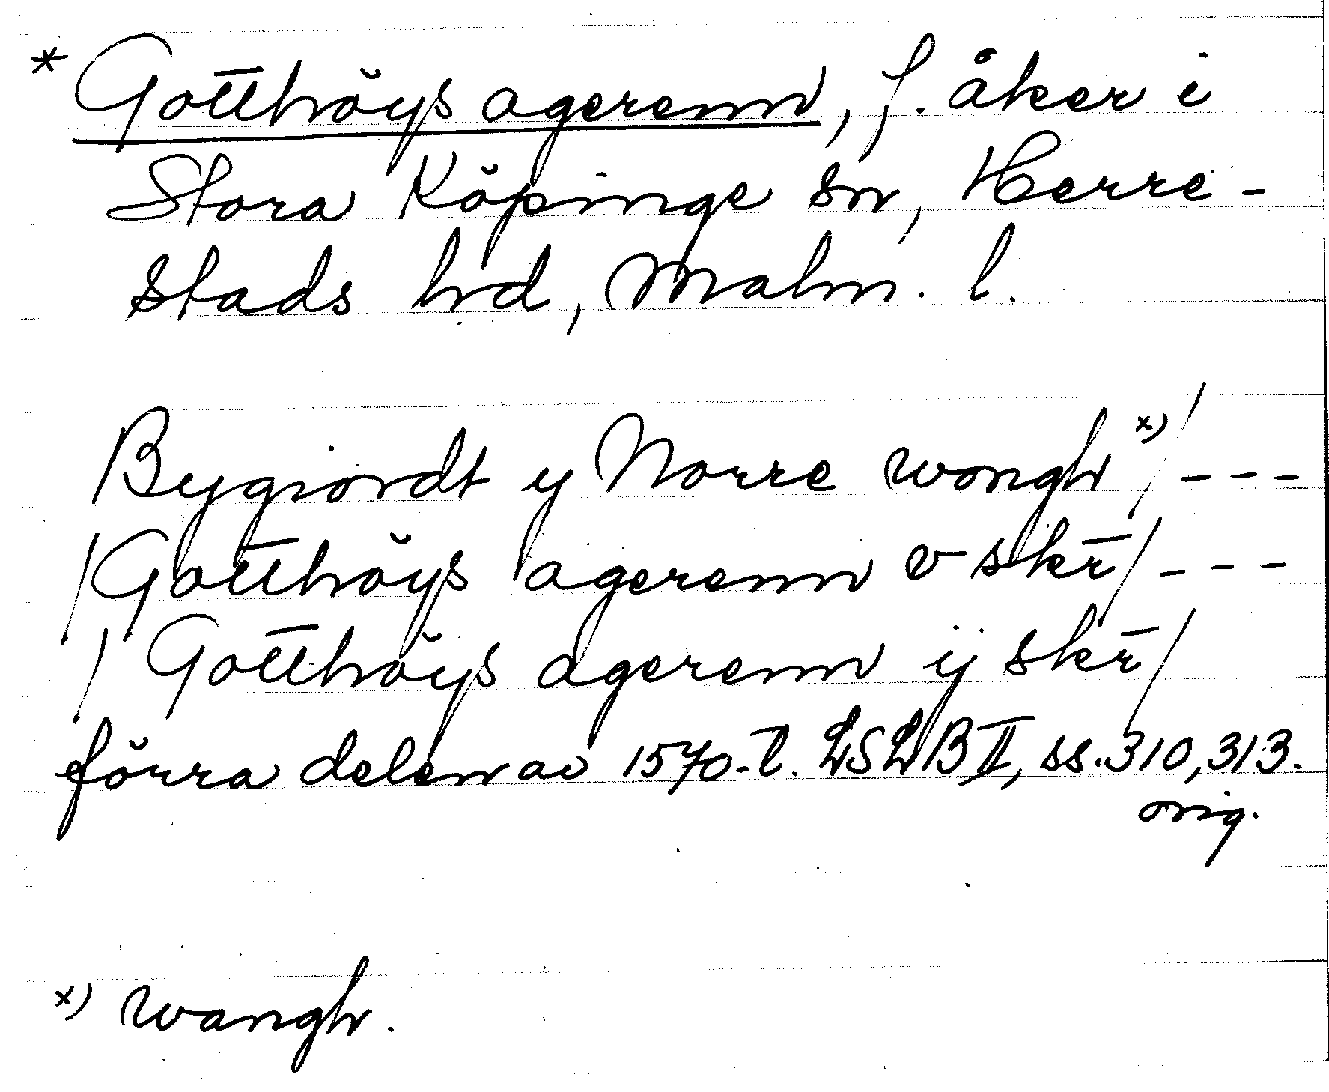 * Gotthöys agerenn, f. åker i
Stora Köpinge sn, Herre-
stads hd, Malm. l.
Bygiordt y Norre wongh x) / - - -
/ Gotthöys agerenn v skr̄ / - - -
/ Gotthöys agerenn ij skr̄ /
förra delen av 1570-t. LSLB II, ss. 310, 313.
orig.
x) wangh.